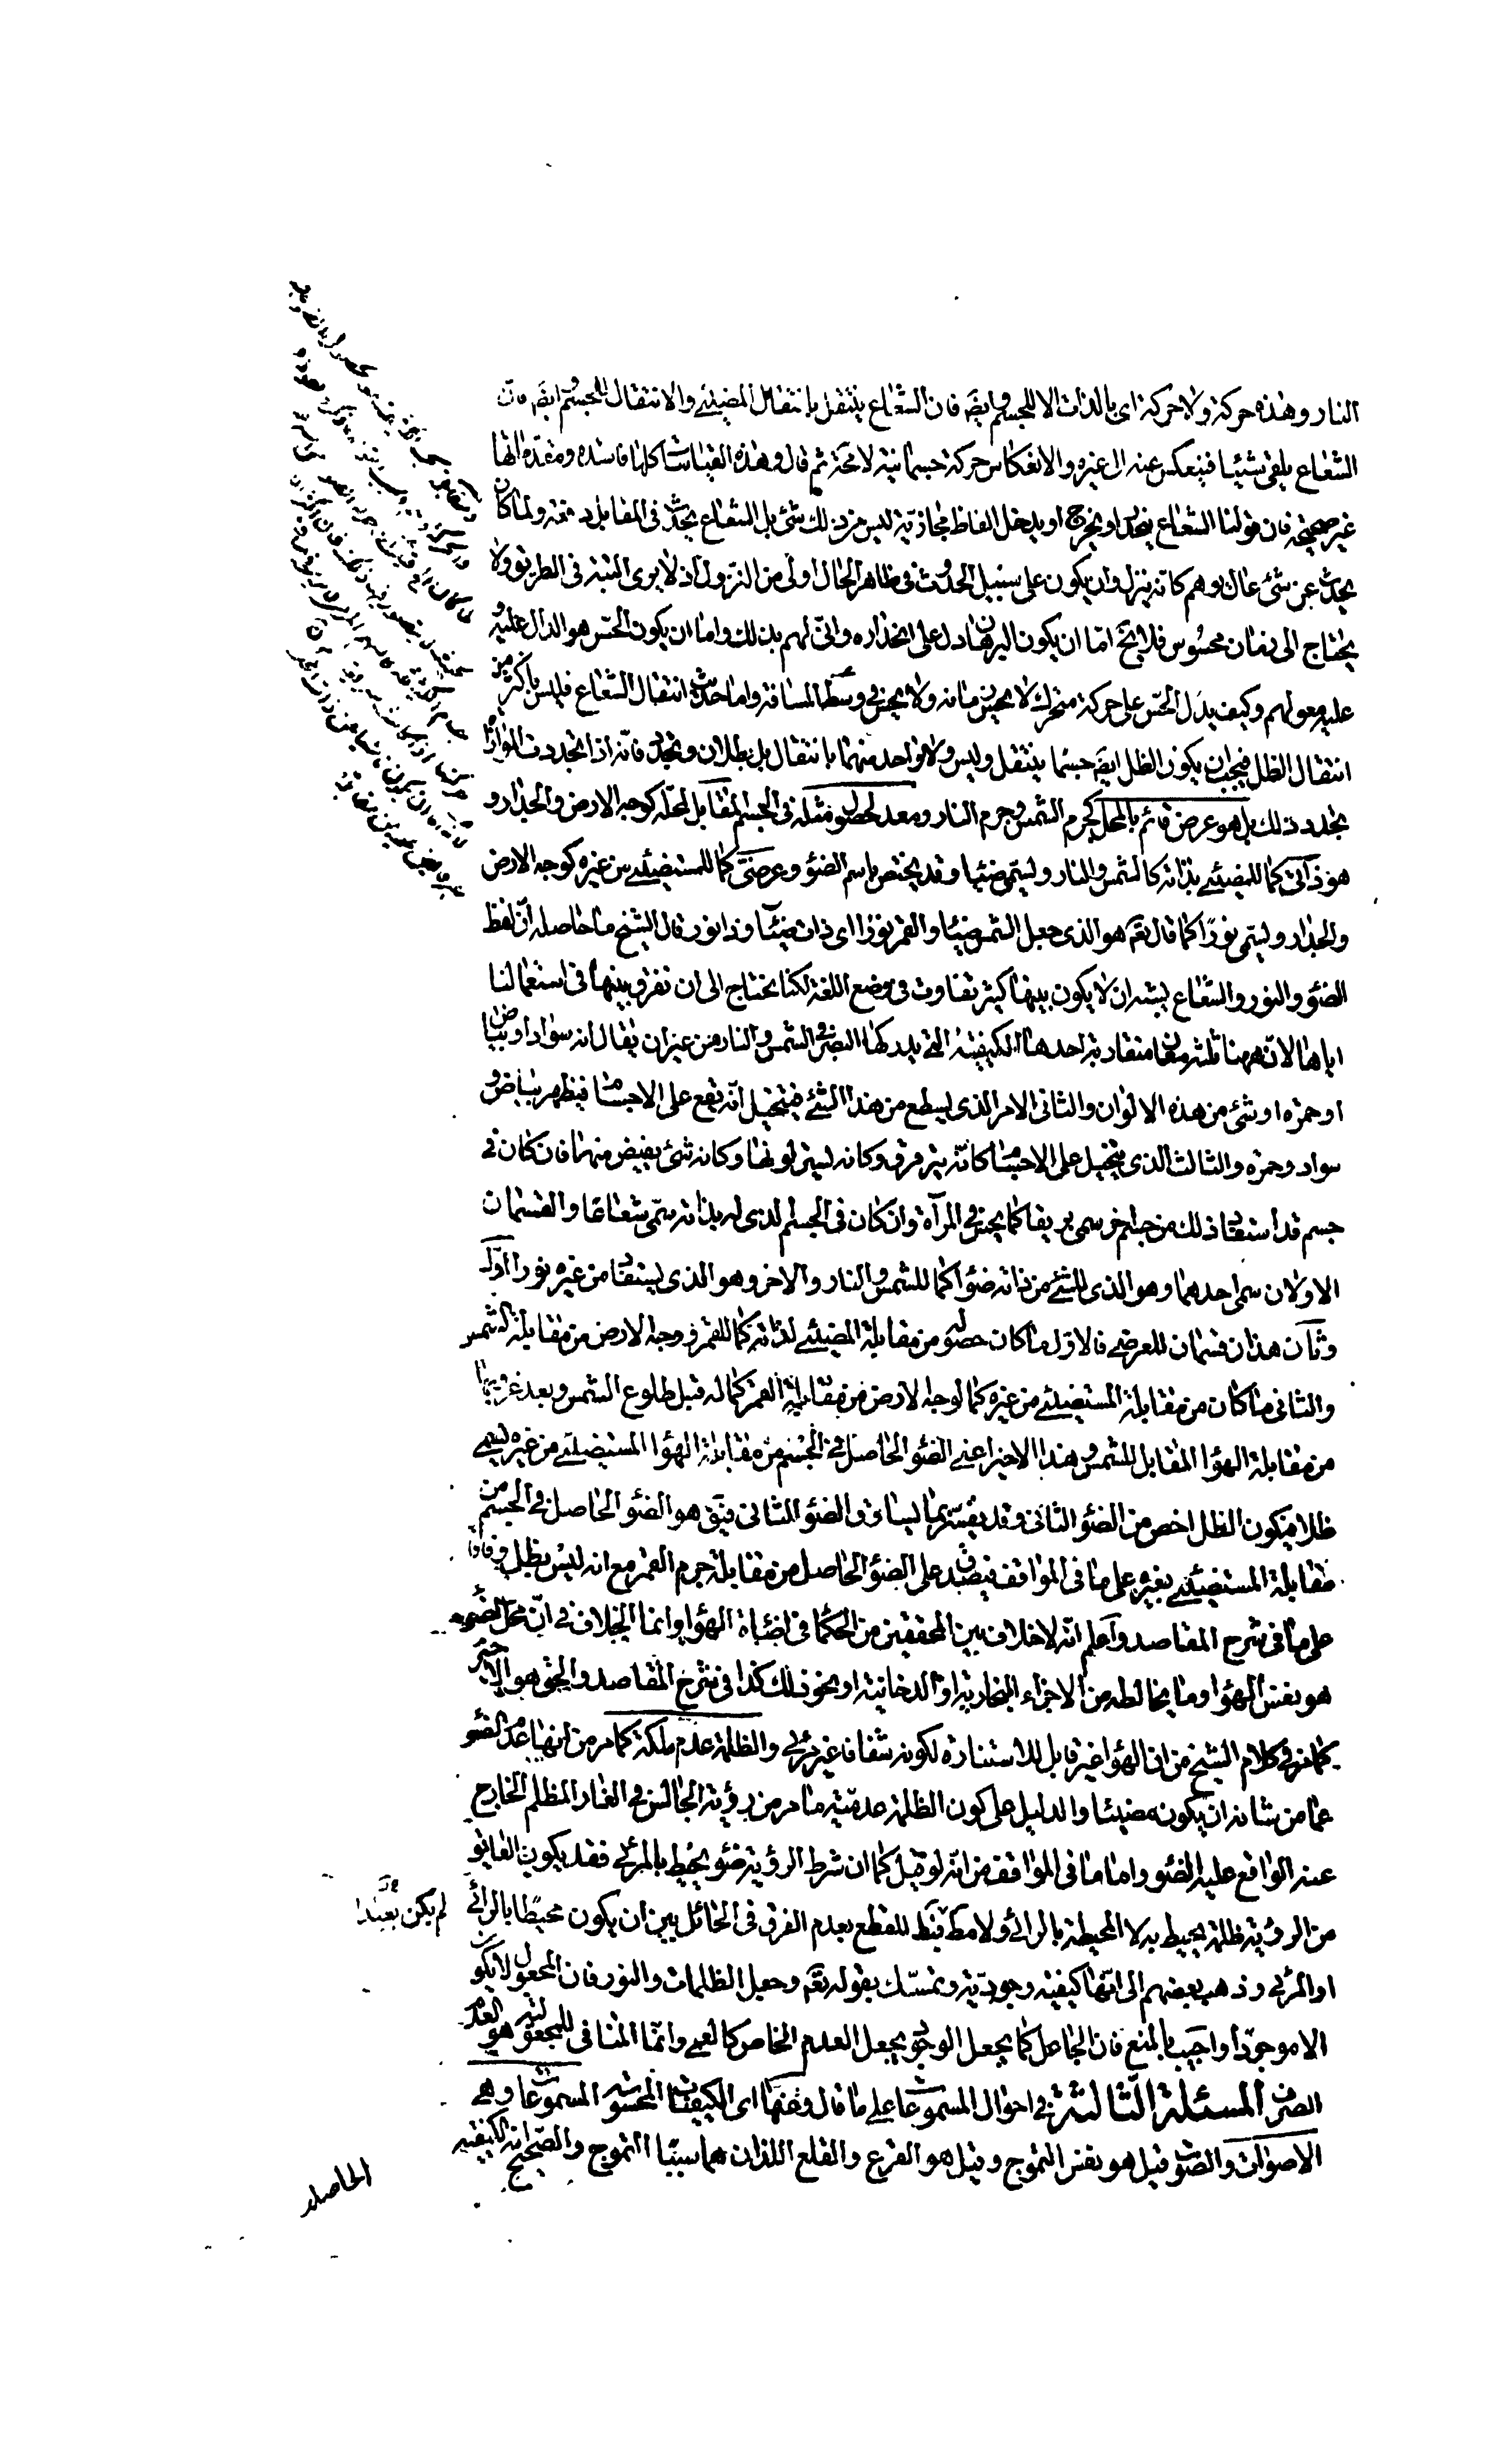 النار وهذه حركة ولا حركة اى بالذات الا للجسم وايضَ فان الشعاع ينتقل بانتقال المضيئ والانتقال للجسم وايضَ فان
الشعاع يلقى شيئا فينعكس عنه الى غيره والانعكاس حركة جسمانية لا محة ثم قال وهذه القياسات كلها فاسدة ومقدماتها
غير صحيحة فان قولنا الشعاع ينحدر او يخرج او يدخل الفاظ مجازية ليس من ذلك شئ بل الشعاع يحدث فى المقابل دفعة ولما كان
يحدث عن شئ عال توهم كانه ينزل وان يكون على سبيل الحدوث فى ظاهر الحال اولى من النزول اذ لا يرى البتة فى الطريق ولا
يحتاج الى زمان محسوس فلا يخ اما ان يكون البرهان دل على انحداره وانى لهم بذلك واما ان يكون الحس هو الدال عليه و
عليه معولهم وكيف يدل الحس على حركة متحرك لا يحس زمانه ولا يحس فى وسط المسافة واما حديث انتقال الشعاع فليس باكثر من
انتقال الظل فيجب ان يكون الظل ايضَ جسما ينتقل وليس ولا واحد منهما بانتقال بل بطلان وتجدد فانه اذا تجددت الموازاة
تجدد ذلك بل هو عرض قائم بالمحل كجرم الشمس وجرم النار ومعد لحصول مثله فى الجسم المقابل لمحله كوجه الارض والجدار و
هو ذاتى كما للمضيئ بذاته كالشمس والنار وليسمى ضيئا وقد يختص باسم الضؤ وعرضى كما للمستضيئ من غيره كوجه الارض
والجدار وليسمى نورًا كما قال تعَ هو الذى جعل الشمس ضيئا والقمر نورا اى ذات ضيئا وذا نور قال الشيخ ما حاصله ان لفظ
الضؤ والنور والشعاع يشبه ان لا يكون بينها كثير تفاوت فى وضع اللغة لكنا نحتاج الى ان نفرق بينها فى استعمالنا
اياها لان ههنا ثلثة معان متقاربة احدها الكيفية التى يدركها البصر فى الشمس والنار من غير ان يقال انه سواد او بياض
او حمرة او شئ من هذه الالوان والثانى الامر الذى يسطع من هذا الشئ فيتخيل انه يقع على الاجسام فيظهر بياض و
سواد وحمرة والثالث الذى يتخيل على الاجسام كانه يترقرق وكانه يستر لونها وكانه شئ يفيض منها فان كان فى
جسم قد استفاد ذلك من جسم اخر سمى بريقا كما يحس فى المرآة وان كان فى الجسم الذى له بذاته سمى شعاعًا والقسمان
الاولان سمى احدهما وهو الذى للشئ من ذاته ضؤا كما للشمس والنار والاخر وهو الذى يستفاد من غيره نورا اول
وثان هذان قسمان للعرضى فالاول ما كان حصوله من مقابلة المضيئ لذاته كما للقمر ووجه الارض من مقابلة الشمس
والثانى ما كان من مقابلة المستضيئ من غيره كما لوجه الارض من مقابلة القمر كما له قبل طلوع الشمس وبعد غروبها
من مقابلة الهؤا المقابل للشمس وهذا الاخير اعنى الضؤ الحاصل فى الجسم من مقابلة الهؤا المستضيئ من غيره ليسمى
ظلا فيكون الظل اخص من الضؤ الثانى وقد يفسر بما يساوق الضؤ الثانى فيق هو الضؤ الحاصل فى الجسم من
مقابلة المستضيئ بغيره على ما فى المواقف فيصدق على الضؤ الحاصل من مقابلة جرم القمر مع انه ليس بظل وفاقا
على ما فى شرح المقاصد واعلم انه لا خلاف بين المحققين من الحكما فى اضائة الهؤا وانما الخلاف فى ان محل الضؤ
هو نفس الهؤا وما يخالطه من الاجزاء البخارية او الدخانية او نحو ذلك كذا فى شرح المقاصد والحق هو الاخير
كما مر فى كلام الشيخ من ان الهؤا غير قابل للاستنارة لكونه شفافا غير مرئى والظلمة عدم ملكة كما مر من انها عدم الضؤ
عما من شانه ان يكون مضيئا والدليل على كون الظلمة عدمية ما مر من رؤية الجالس فى الغار المظلم الخارج
عنه الواقع عليه الضؤ واما ما فى المواقف من انه لو قيل كما ان شرط الرؤية ضؤ يحيط بالمرئى فقد يكون العايق
من الرؤية ظلمة يحيط به لا المحيطة بالرائى ولا مط فيط للقطع بعدم الفرق فى الحائل بين ان يكون محيطا بالرائى
لم يكن بعيدا
او المرئى وذهب بعضهم الى انها كيفية وجودية وتمسك بقوله تعَ وجعل الظلمات والنور فان المجعول لا يكون
الا موجودا واجيب بالمنع فان الجاعل كما يجعل الوجود يجعل العدم الخاص كالعمى وانما المنافى للمجعولية هو العدم
الصرف المسئلة الثالثة فى احوال المسموعات على ما قال ومنها اى الكيفيات المحسوسة المسموعات وهى
الاصوات والصوت قيل هو نفس التموج وقيل هو القرع والقلع اللذان هما سببا التموج والصحيح انه الكيفية
الحاصلة